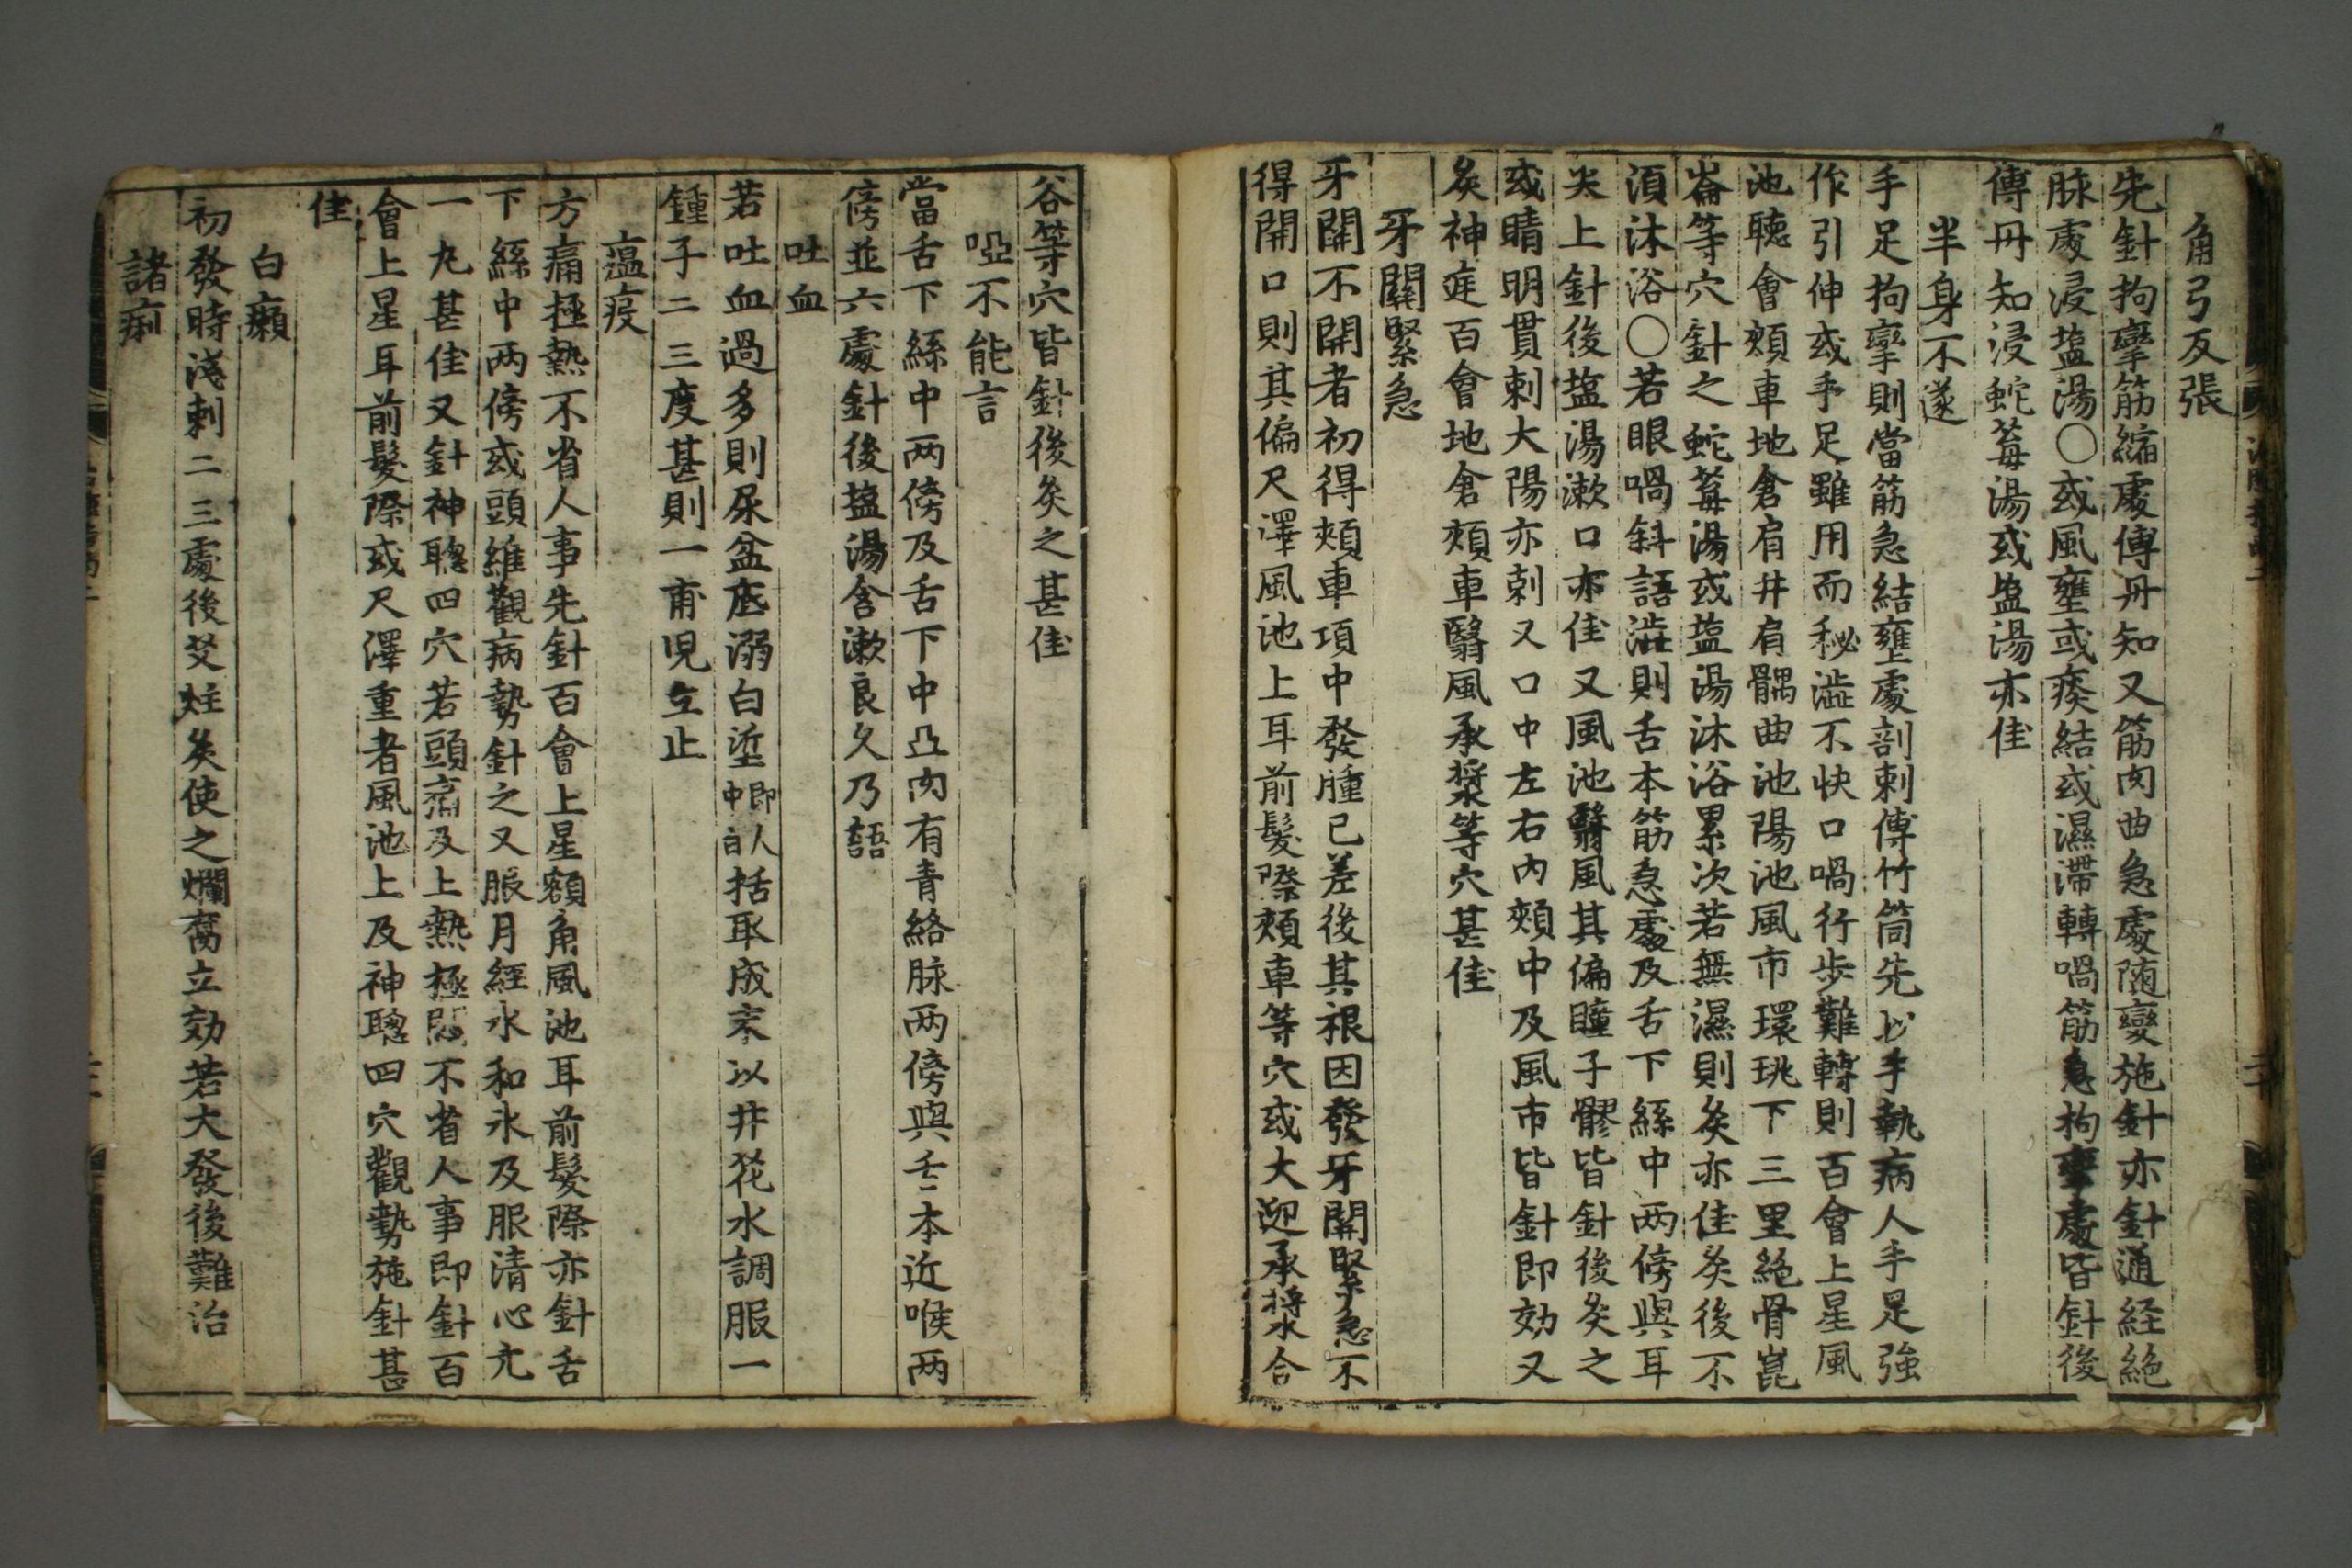 角弓反張
先針拘攣筋縮處傅丹知又筋肉曲急處随變施針亦針通経絶
脉處浸塩湯〇或風壅或痰結或濕滯轉喎筋急拘攣處皆針後
傅丹知浸蛇莓湯或塩湯亦佳
半身不遂
手足拘攣則當筋急結壅處剖刺傅竹筒先以手執病人手足強
作引伸或手足雖用而秘澁不快口喎行步難轉則百會上星風
池聴會頰車地倉肩井肩髃曲池陽池風市環珧下三里絶骨崑
崙等穴針之蛇莓湯或塩湯沐浴累次若無濕則灸亦佳灸後不
湏沐浴〇若眼喎斜語澁則舌本筋急處及舌下絲中两傍與耳
尖上針後塩湯漱口亦佳又風池翳風其偏瞳子髎皆針後灸之
或睛明貫刺大陽亦刺又口中左右内頰中及風市皆針即効又
灸神庭百會地倉頰車翳風承漿等穴甚佳
牙關緊急
牙關不開者初得頰車項中發腫已差後其根因發牙關緊急不
得開口則其偏尺澤風池上耳前髮際頰車等穴或大迎承漿合
谷等穴皆針後灸之甚佳
啞不能言
當舌下絲中两傍及舌下中凸肉有青絡脉两傍與舌本近喉两
傍並六處針後塩湯含漱良久乃語
吐血
若吐血過多則尿盆底溺白垽即人中白括取成末以井花水調服一
鍾子二三度甚則一兩児立止
瘟疫
方痛極熱不省人事先針百會上星額角風池耳前髮際亦針舌
下絲中两傍或頭維觀病勢針之又服月経水和氷及服清心元
一丸甚佳又針神聰四穴若頭痛及上熱極悶不省人事即針百
會上星耳前髮際或尺澤重者風池上及神聰四穴觀勢施針甚
佳
白癩
初發時淺刺二三處後艾炷灸使之爛腐立効若大發後難治
諸痢